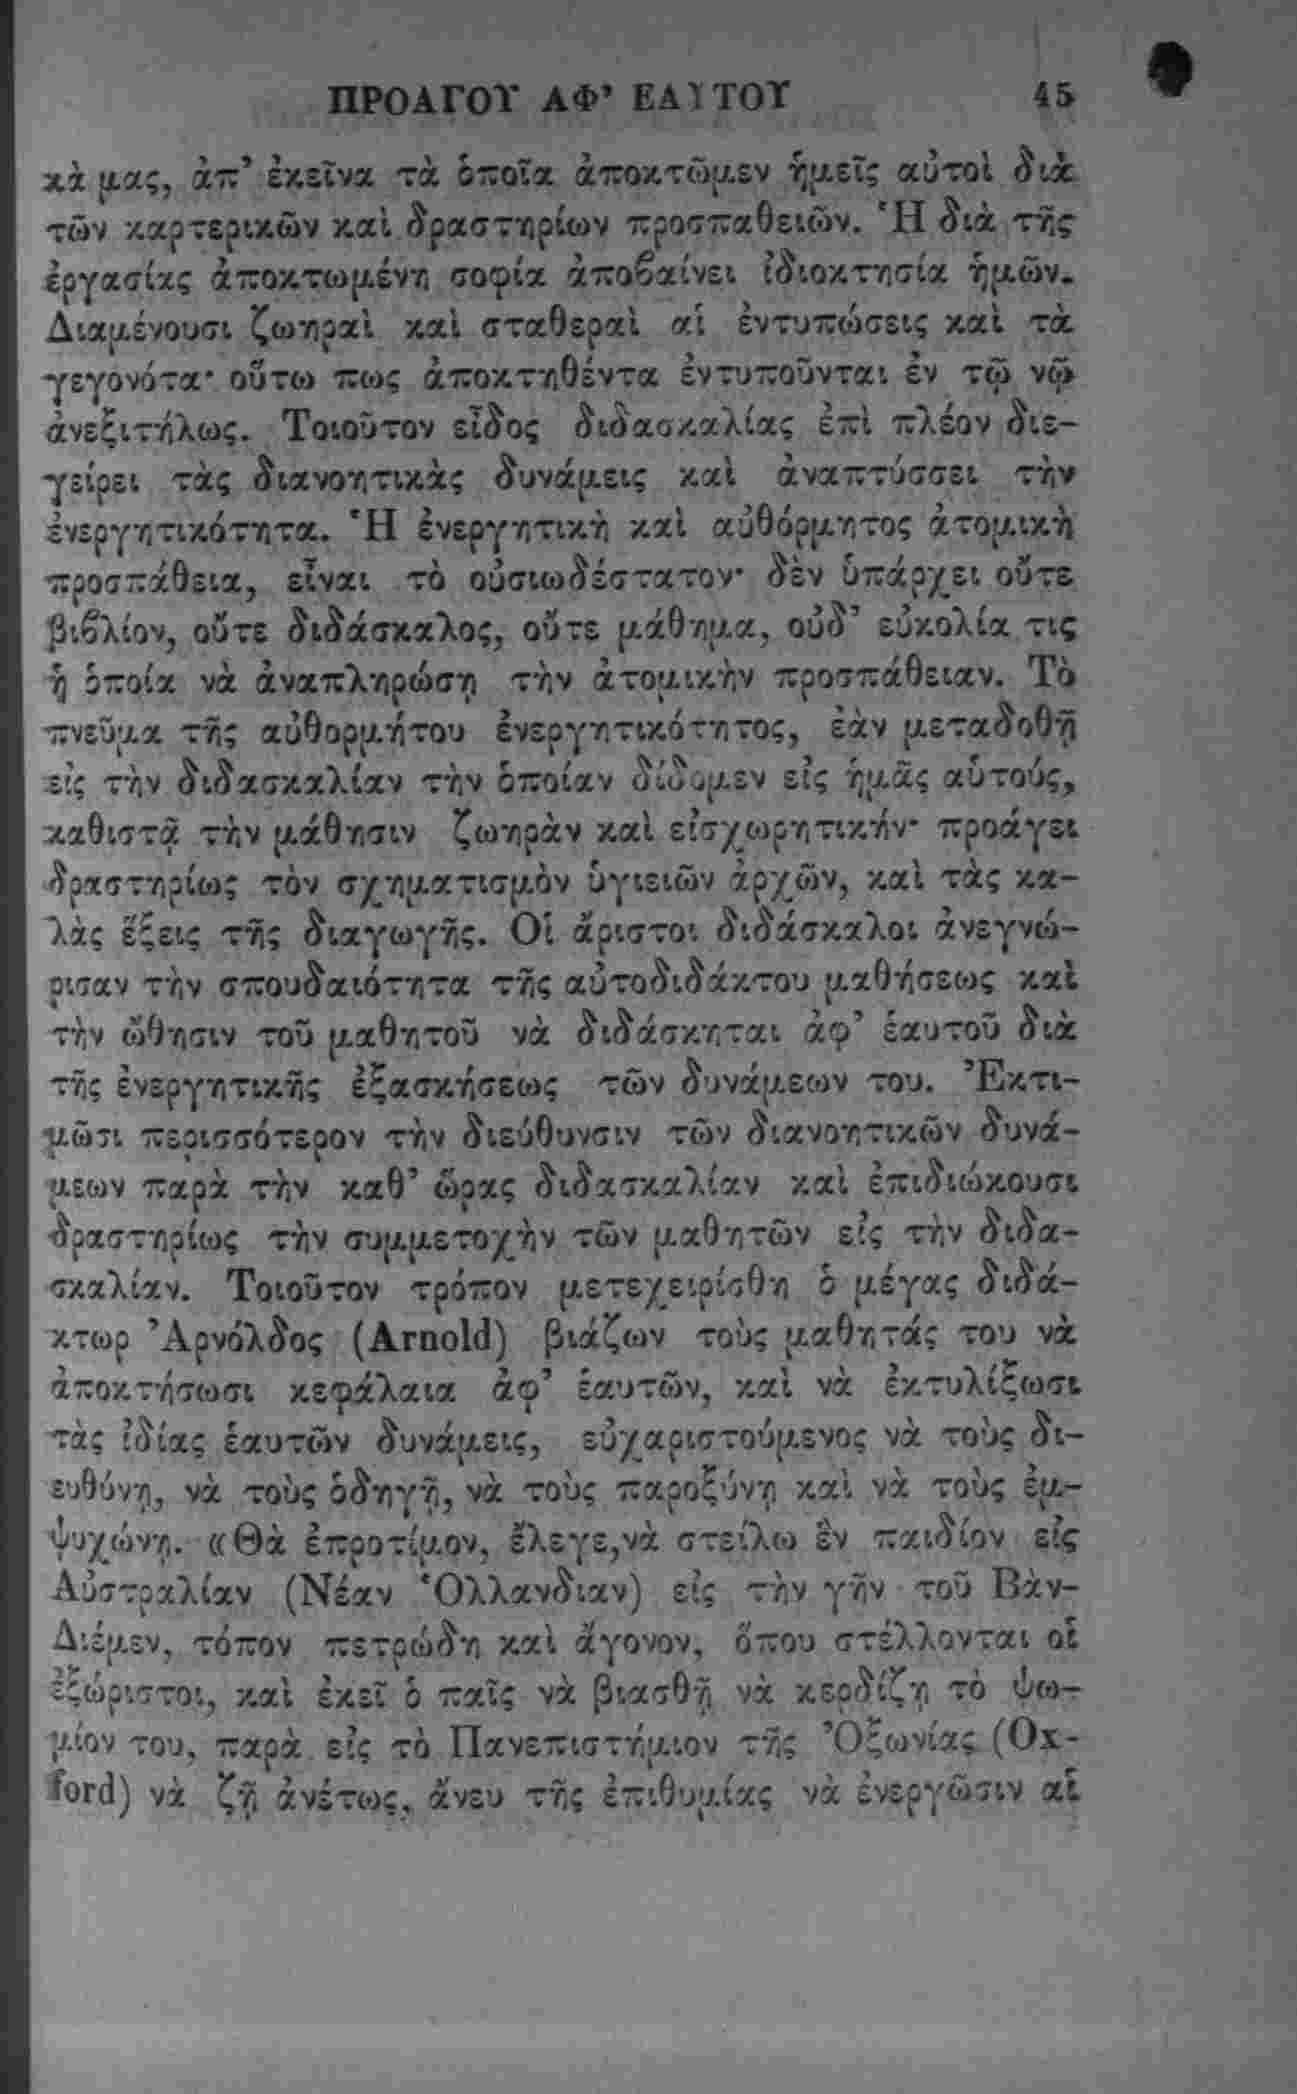 ΠΡΟΑΓΟΥ ΑΦ’ ΕΑΥΤΟΥ 45
κὰ μας, ἀπ’ ἐκεῖνα τὰ ὁποῖα ἀποκτῶμεν ἡμεῖς αὐτοὶ διὰ
τῶν καρτερικῶν καὶ δραστηρίων προσπαθειῶν. Ἡ διὰ τῆς
ἐργασίας ἀποκτωμένη σοφία ἀποβαίνει ἰδιοκτησία ἡμῶν.
Διαμένουσι ζωηραὶ καὶ σταθεραὶ αἱ ἐντυπώσεις καὶ τὰ
γεγονότα· οὕτω πως ἀποκτηθέντα ἐντυποῦνται ἐν τῷ νῷ
ἀνεξιτήλως. Τοιοῦτον εἶδος διδασκαλίας ἐπὶ πλέον διε-
γείρει τὰς διανοητικὰς δυνάμεις καὶ ἀναπτύσσει τὴν
ἐνεργητικότητα. Ἡ ἐνεργητικὴ καὶ αὐθόρμητος ἀτομικὴ
προσπάθεια, εἶναι τὸ οὐσιωδέστατον· δὲν ὑπάρχει οὔτε
βιβλίον, οὔτε διδάσκαλος, οὔτε μάθημα, οὐδ’ εὐκολία τις
ἡ ὁποία νὰ ἀναπληρώσῃ τὴν ἀτομικὴν προσπάθειαν. Τὸ
πνεῦμα τῆς αὐθορμήτου ἐνεργητικότητος, ἐὰν μεταδοθῇ
εἰς τὴν διδασκαλίαν τὴν ὁποίαν δίδομεν εἰς ἡμᾶς αὑτούς,
καθιστᾷ τὴν μάθησιν ζωηρὰν καὶ εἰσχωρητικήν· προάγει
δραστηρίως τὸν σχηματισμὸν ὑγιειῶν ἀρχῶν, καὶ τὰς κα-
λὰς ἕξεις τῆς διαγωγῆς. Οἱ ἄριστοι διδάσκαλοι ἀνεγνώ-
ρισαν τὴν σπουδαιότητα τῆς αὐτοδιδάκτου μαθήσεως καὶ
τὴν ὤθησιν τοῦ μαθητοῦ νὰ διδάσκηται ἀφ’ ἑαυτοῦ διὰ
τῆς ἐνεργητικῆς ἐξασκήσεως τῶν δυνάμεων του. Ἐκτι-
μῶσι περισσότερον τὴν διεύθυνσιν τῶν διανοητικῶν δυνά-
μεων παρὰ τὴν καθ’ ὥρας διδασκαλίαν καὶ ἐπιδιώκουσι
δραστηρίως τὴν συμμετοχὴν τῶν μαθητῶν εἰς τὴν διδα-
σκαλίαν. Τοιοῦτον τρόπον μετεχειρίσθη ὁ μέγας διδά-
κτωρ Ἀρνόλδος (Arnold) βιάζων τοὺς μαθητάς του νὰ
ἀποκτήσωσι κεφάλαια ἀφ’ ἑαυτῶν, καὶ νὰ ἐκτυλίξωσι
τὰς ἰδίας ἑαυτῶν δυνάμεις, εὐχαριστούμενος νὰ τοὺς δι-
ευθύνῃ, νὰ τοὺς ὁδηγῇ, νὰ τοὺς παροξύνῃ καὶ νὰ τοὺς ἐμ-
ψυχώνῃ. «Θὰ ἐπροτίμον, ἔλεγε,νὰ στείλω ἓν παιδίον εἰς
Αὐστραλίαν (Νέαν Ὁλλανδιαν) εἰς τὴν γῆν τοῦ Βὰν-
Διέμεν, τόπον πετρώδη καὶ ἄγονον, ὅπου στέλλονται οἱ
ἐξώριστοι, καὶ ἐκεῖ ὁ παῖς νὰ βιασθῇ νὰ κερδίζῃ τὸ ψω-
μίον του, παρὰ εἰς τὸ Πανεπιστήμιον τῆς Ὀξωνίας (Ox-
ford) νὰ ζῇ ἀνέτως, ἄνευ τῆς ἐπιθυμίας νὰ ἐνεργῶσιν αἱ